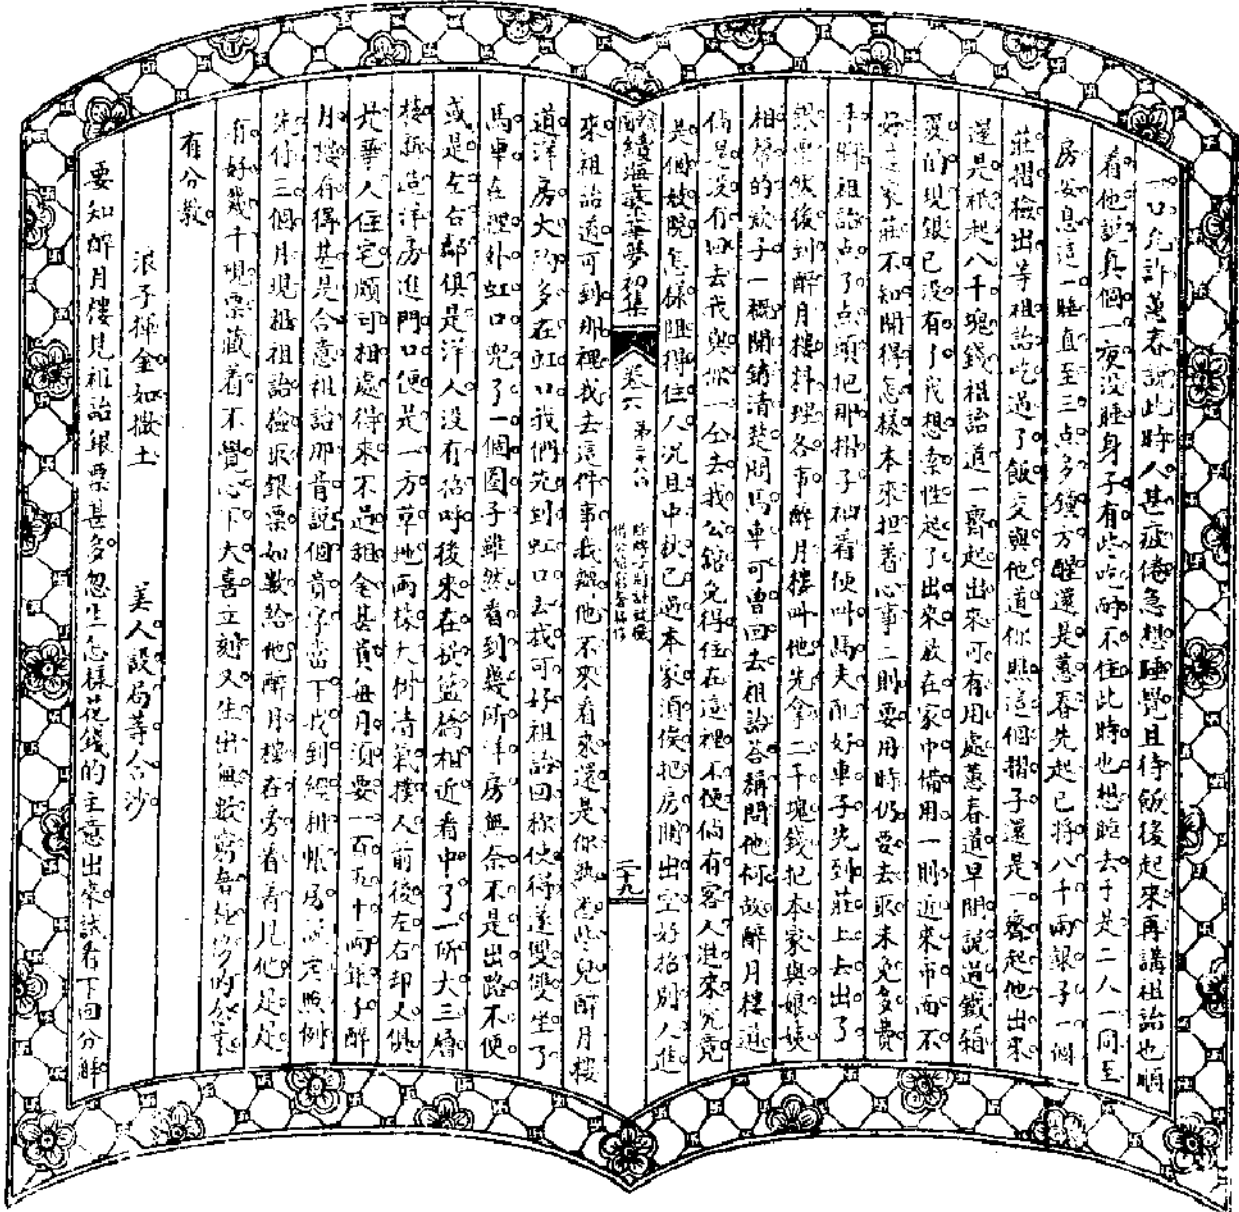 一口允許蕙春說此時人甚疲倦急想睡覺且待飯後起來再講祖詒也順
着他說真個一夜没睡身子有些吃耐不住此時也想睡去于是二人一同至
房安息這一睡直至三点多鐘方醒還是蕙春先起已將八千兩銀子一個
莊摺檢出等祖詒吃過了飯交與他道你照這個摺子還是一齊起他出來
還是祇起八千塊錢祖詒道一齊起出來可有用處蕙春道早間說過鐵箱
裏的現銀已没有了我想索性起了出來放在家中備用一則近來市面不
好這家莊不知開得怎樣本來担着心事二則要用時仍要去取未免多費
手脚祖詒点了点頭把那摺子袖着便叫馬夫配好車子先到莊上去出了
銀票然後到醉月樓料理各事醉月樓叫他先拿二千塊錢把本家與娘姨
相幫的欵子一概開銷清楚問馬車可曾回去祖詒答稱問他何故醉月樓道
倘是没有回去我與你一仝去找公館免得住在這裡不便倘有客人進來究竟
是個妓院怎樣阻得住人况且中秋已過本家須俟把房間出空好招別人進
繪圖續海上繁華夢初集 卷六 第二十八回 二十九
來祖詒道可到那裡我去這件事我離他不來看來還是你熟些兒醉月樓
道洋房大約多在虹口我們先到虹口去找可好祖詒回稱使得遂雙雙坐了
馬車在裡外虹口兜了一個圈子雖然看到幾所洋房無奈不是出路不便
或是左右鄰俱是洋人没有招呼後來在提籃橋相近看中了一所大三層
樓新造洋房進門口便是一方草地兩株大樹清氣撲人前後左右却又俱
是華人住宅頗可相處得來不過租金甚貴每月須要一百五十兩銀子醉
月樓看得甚是合意祖詒那肯說個貴字當下找到經租帳房 定照例
先付三個月現租祖詒檢取銀票如數給他醉月樓在旁看着見他足足
有好幾千現票藏着不覺心下大喜立刻又生出無數窮奢極 的念頭
有分教
浪子揮金如撒土 美人設局等含沙
要知醉月樓見祖詒銀票甚多忽生怎樣花錢的主意出來試看下回分解